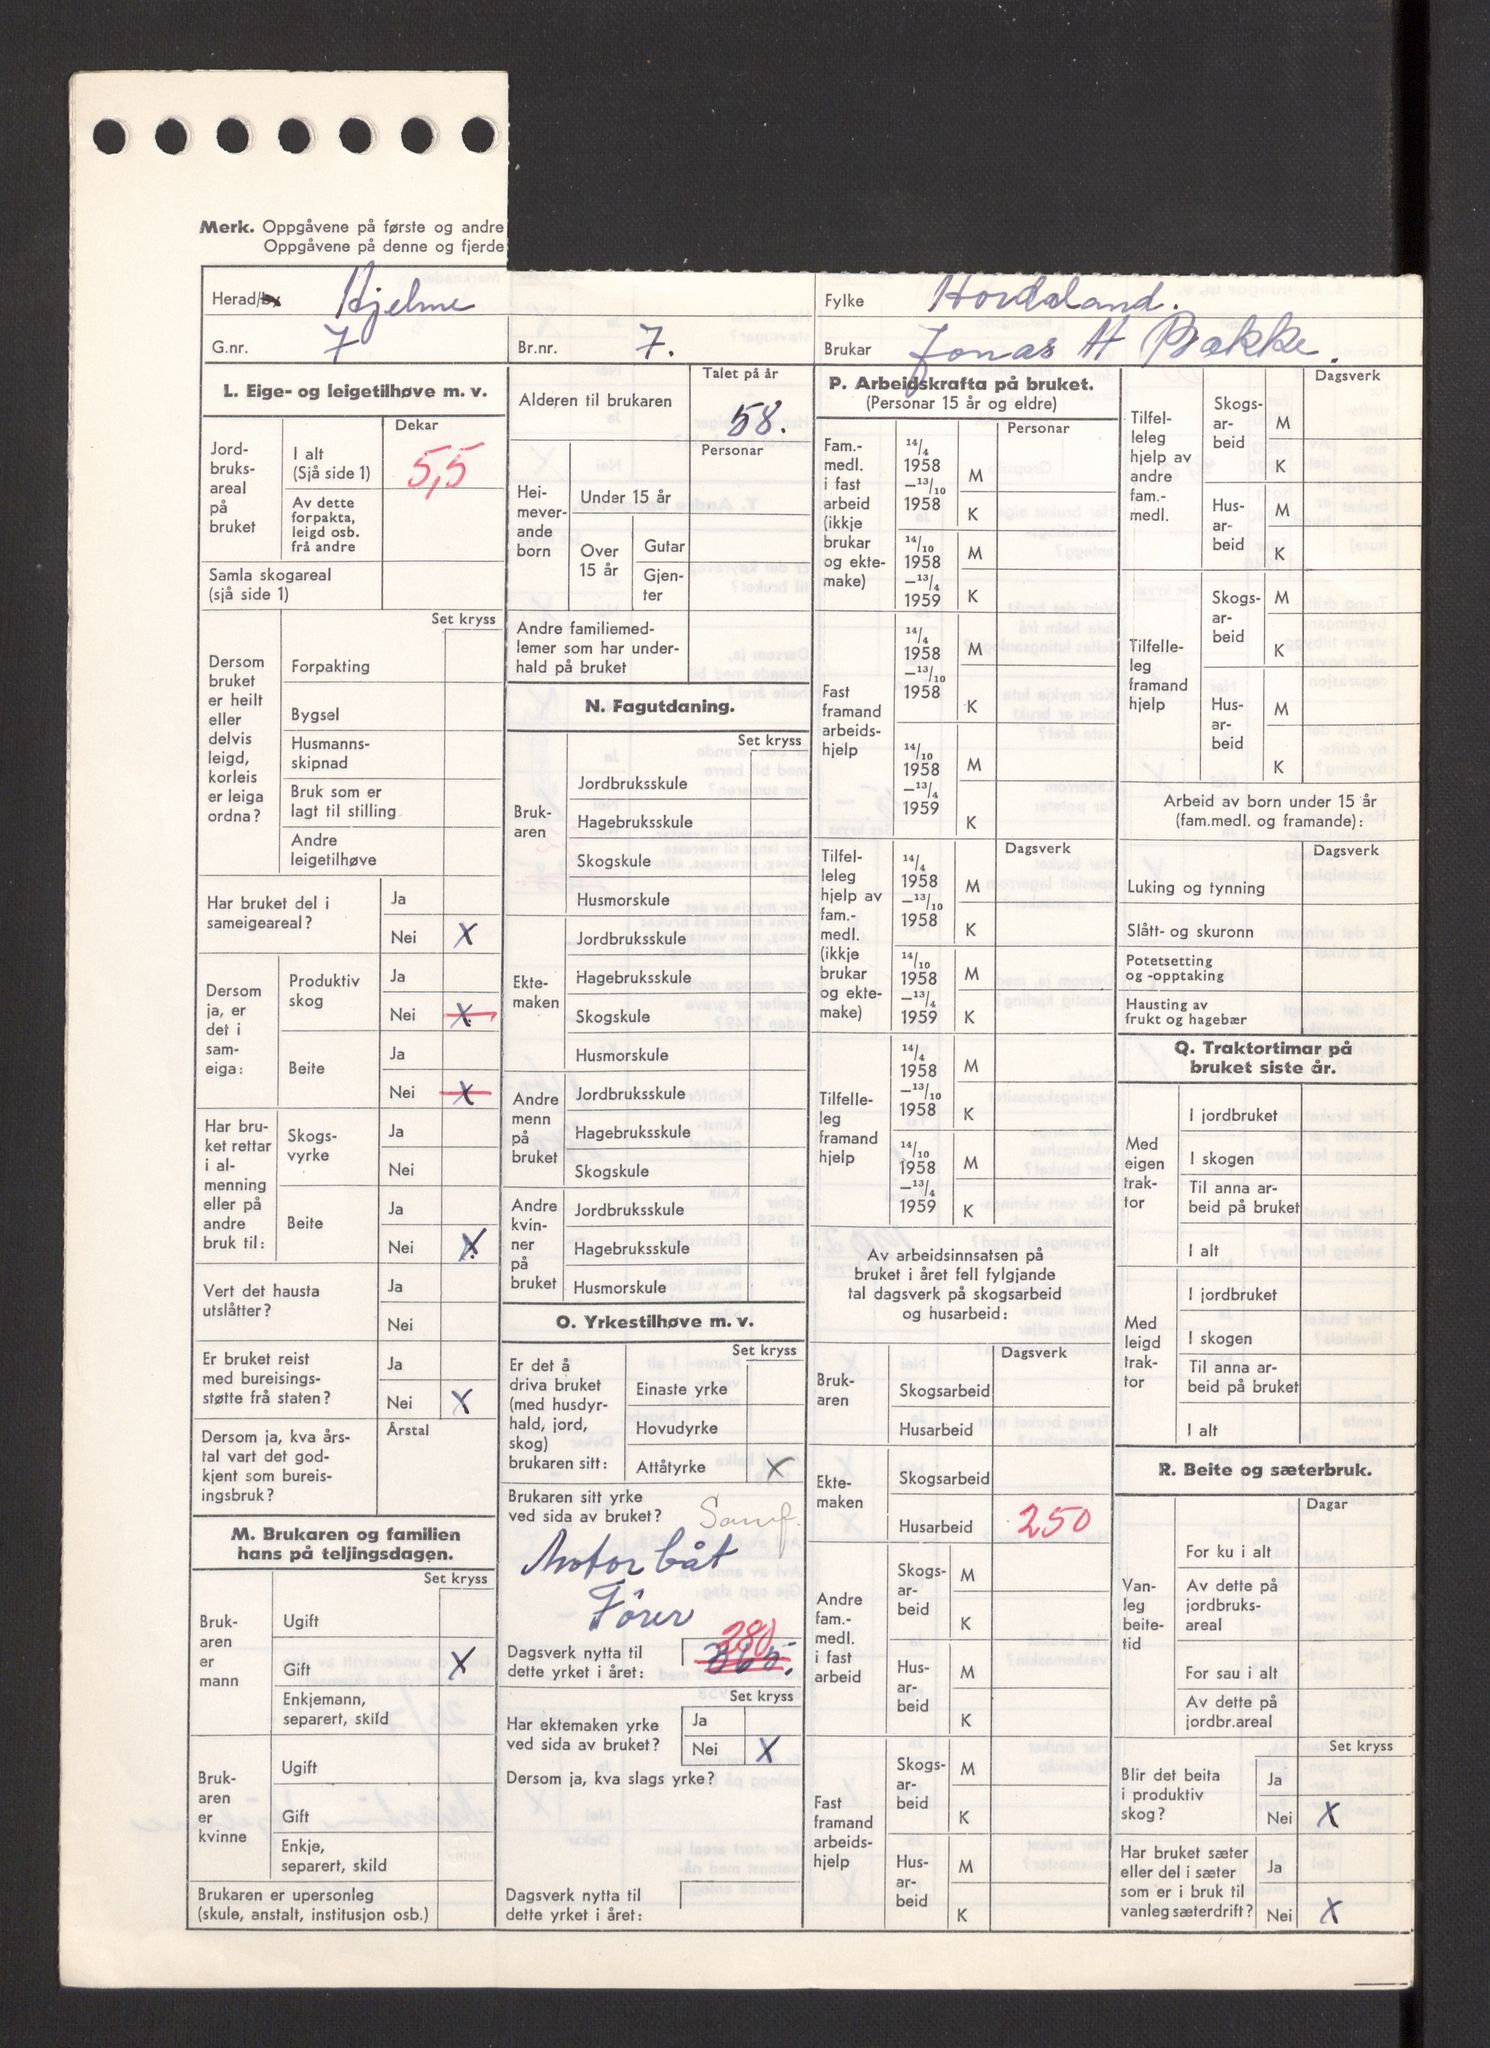 Merk. Oppgåvene på første og andre
Oppgåvene på denne og fjerde
Herad/by Hjelme
Fylke Hordaland.
G.nr. 7
Br.nr. 7.
Brukar Jonas H Bakke.
L. Eige- og leigetilhøve m. v.
Dekar
Jord-
bruks-
areal
på
bruket
I alt
(Sjå side 1)
5,5
Av dette
forpakta,
leigd osb.
frå andre
Samla skogareal
(sjå side 1)
Set kryss
Dersom
bruket
er heilt
eller
delvis
leigd,
korleis
er leiga
ordna?
Forpakting
Bygsel
Husmanns-
skipnad
Bruk som er
lagt til stilling
Andre
leigetilhøve
Har bruket del i
sameigeareal?
Ja
Nei X
Dersom
ja, er
det i
sam-
eiga:
Produktiv
skog
Ja
Nei X
Beite
Ja
Nei X
Har bru-
ket rettar
i al-
menning
eller på
andre
bruk til:
Skogs-
vyrke
Ja
Nei
Beite
Ja
Nei X
Vert det hausta
utslåtter?
Ja
Nei
Er bruket reist
med bureisings-
støtte frå staten?
Ja
Nei X
Dersom ja, kva års-
tal vart det god-
kjent som bureis-
ingsbruk?
Årstal
M. Brukaren og familien
hans på teljingsdagen.
Set kryss
Bruk-
aren
er
mann
Ugift
Gift X
Enkjemann,
separert, skild
Bruk-
aren
er
kvinne
Ugift
Gift
Enkje,
separert, skild
Brukaren er upersonleg
(skule, anstalt, institusjon osb.)
Talet på år
Alderen til brukaren
58.
Personar
Hei-
mever-
ande
born
Under 15 år
Over
15 år
Gutar
Gjen-
ter
Andre familiemed-
lemer som har under-
hald på bruket
N. Fagutdaning.
Set kryss
Bruk-
aren
Jordbruksskule
Hagebruksskule
Skogskule
Husmorskule
Ekte-
maken
Jordbruksskule
Hagebruksskule
Skogskule
Husmorskule
Andre
menn
på
bruket
Jordbruksskule
Hagebruksskule
Skogskule
Andre
kvin-
ner
på
bruket
Jordbruksskule
Hagebruksskule
Husmorskule
O. Yrkestilhøve m. v.
Set kryss
Er det å
driva bruket
(med husdyr-
hald, jord,
skog)
brukaren sitt:
Einaste yrke
Hovudyrke
Attåtyrke X
Brukaren sitt yrke
ved sida av bruket?
Samf.
Motor båt
Fører
Dagsverk nytta til
dette yrket i året:
280
365.
Set kryss
Har ektemaken yrke
ved sida av bruket?
Ja
Nei X
Dersom ja, kva slags yrke?
Dagsverk nytta til
dette yrket i året:
P. Arbeidskrafta på bruket.
(Personar 15 år og eldre)
Personar
Fam.-
medl.
i fast
arbeid
(ikkje
brukar
og ekte-
make)
14/4
1958
—13/10
1958
M
K
14/10
1958
—13/4
1959
M
K
Fast
framand
arbeids-
hjelp
14/4
1958
—13/10
1958
M
K
14/10
1958
—13/4
1959
M
K
Dagsverk
Tilfel-
leleg
hjelp av
fam.-
medl.
(ikkje
brukar
og ekte-
make)
14/4
1958
—13/10
1958
M
K
14/10
1958
—13/4
1959
M
K
Tilfelle-
leg
framand
hjelp
14/4
1958
—13/10
1958
M
K
14/10
1958
—13/4
1959
M
K
Av arbeidsinnsatsen på
bruket i året fell fylgjande
tal dagsverk på skogsarbeid
og husarbeid:
Dagsverk
Bruk-
aren
Skogsarbeid
Husarbeid
Ekte-
maken
Skogsarbeid
Husarbeid 250
Andre
fam.-
medl.
i fast
arbeid
Skogs-
ar-
beid
M
K
Hus-
ar-
beid
M
K
Fast
framand
arbeids-
hjelp
Skogs-
ar-
beid
M
K
Hus-
ar-
beid
M
K
Dagsverk
Tilfel-
leleg
hjelp av
andre
fam.-
medl.
Skogs-
ar-
beid
M
K
Hus-
ar-
beid
M
K
Tilfelle-
leg
framand
hjelp
Skogs-
ar-
beid
M
K
Hus-
ar-
beid
M
K
Arbeid av born under 15 år
(fam.medl. og framande):
Dagsverk
Luking og tynning
Slått- og skuronn
Potetsetting
og -opptaking
Hausting av
frukt og hagebær
Q. Traktortimar på
bruket siste år.
Med
eigen
trak-
tor
I jordbruket
I skogen
Til anna ar-
beid på bruket
I alt
Med
leigd
trak-
tor
I jordbruket
I skogen
Til anna ar-
beid på bruket
I alt
R. Beite og sæterbruk.
Dagar
Van-
leg
beite-
tid
For ku i alt
Av dette på
jordbruks-
areal
For sau i alt
Av dette på
jordbr.areal
Set kryss
Blir det beita
i produktiv
skog?
Ja
Nei X
Har bruket sæter
eller del i sæter
som er i bruk til
vanleg sæterdrift?
Ja
Nei X